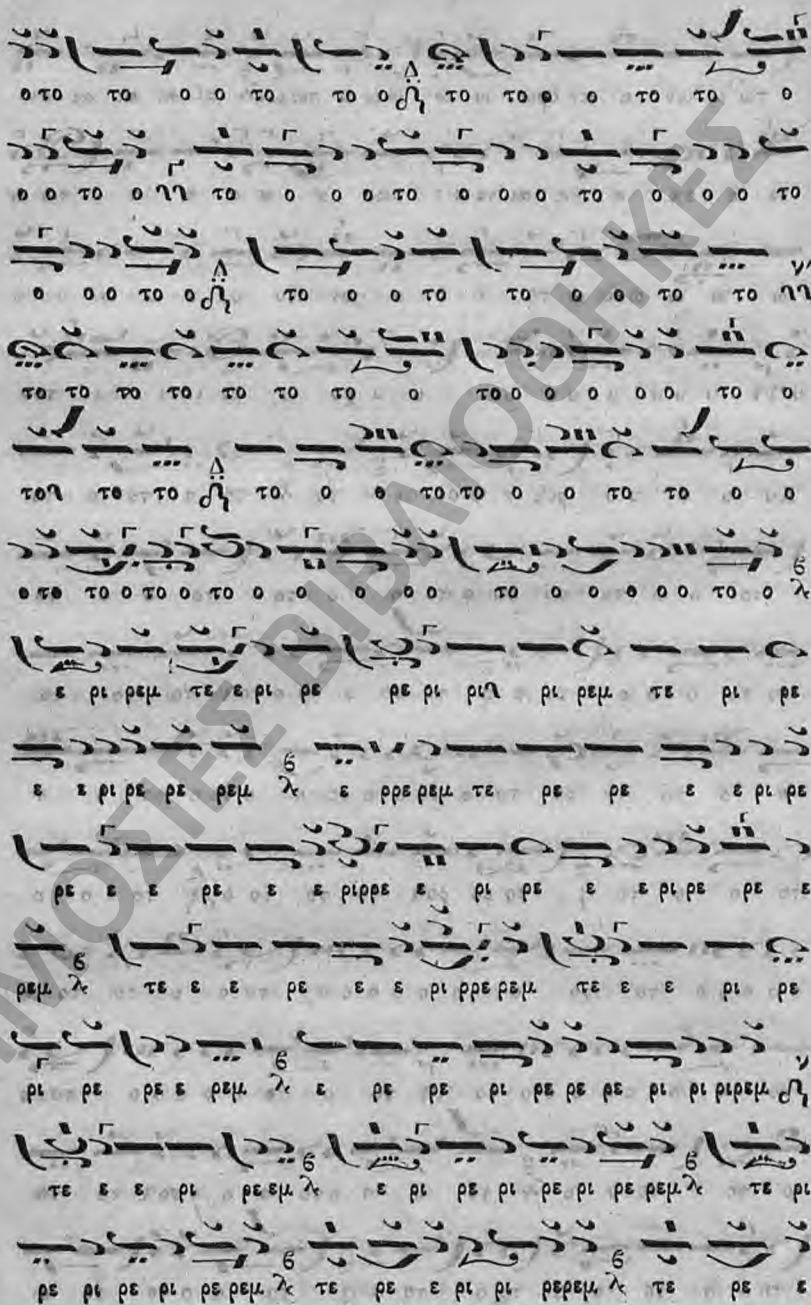 ο το το ο ο το το ο Δ το το ο ο το το ο
ο ο το ο το ο ο ο το ο ο ο το ο ο ο το
ο ο ο το ο Δ το ο ο το το ο ο το το
το το το το το το το ο το ο ο ο ο ο το ο
το το το Δ το ο ο το το ο ο το το ο ο
ο το το ο το ο το ο ο ο ο ο το ο ο ο ο ο το ο
ε ρι ρεμ τε ε ρι ρε ρε ρι ρι ρι ρεμ τε ρι ρε
ε ε ρι ρε ρε ρεμ ε ρρε ρεμ τε ρε ρε ε ε ρι ρε
ρε ε ε ρε ε ε ριρρε ε ρι ρε ε ε ρι ρε ρε ε
ρεμ τε ε ε ρε ε ε ρι ρρε ρεμ τε ε ε ρι ρε
ρι ρε ρε ε ρεμ ε ρε ρε ρι ρε ρε ρε ρι ρι ριρεμ
τε ε ε ρι ρε εμ ε ρι ρε ρι ρε ρι ρε ρεμ τε ρι
ρε ρι ρε ρι ρε ρεμ τε ρε ε ρι ρι ρερεμ τε ρε ε
ΜΟΣΙΕΣ ΒΙΒΛΙΟΘΗΚΕΣ